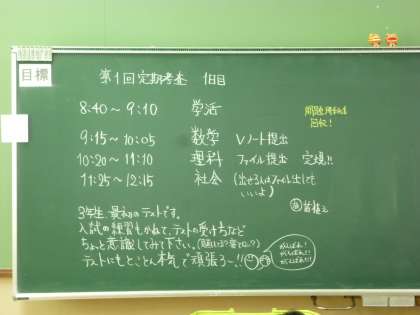 目標
第1回定期考査 1日目
8:40～9:10 学活
9:15～10:05 数学 Vノート提出
10:20～11:10 理科 ファイル提出 定規!!
11:25～12:15 社会 (出せる人はファイル出しても
いいよ)
3年生、最初のテストです。
入試の練習もかねて、テストの受け方など
ちょっと意識してみて下さい。
テストにもとことん本気で頑張ろー!!
がんばれ!
がんばれ!!
がんばれ!!